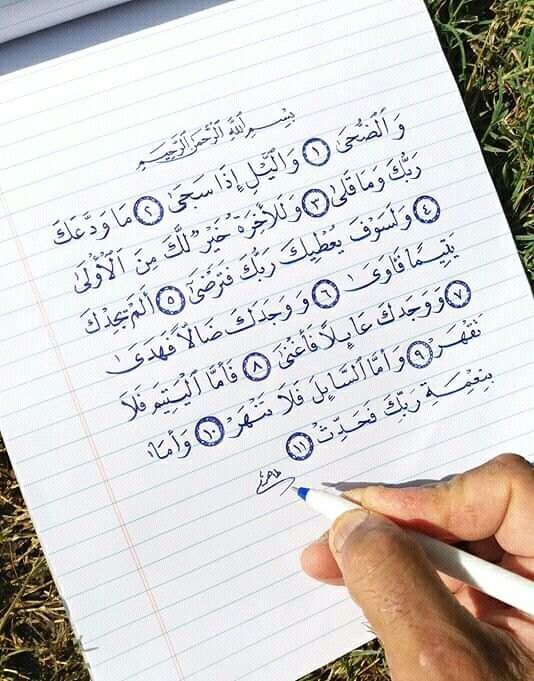 بِسْمِ ٱللَّهِ ٱلرَّحْمَٰنِ ٱلرَّحِيمِ
وَٱلضُّحَىٰ ١ وَٱلَّيْلِ إِذَا سَجَىٰ ٢ مَا وَدَّعَكَ
رَبُّكَ وَمَا قَلَىٰ ٣ وَلَلْأَخِرَةُ خَيْرٌ لَّكَ مِنَ ٱلْأُولَىٰ
٤ وَلَسَوْفَ يُعْطِيكَ رَبُّكَ فَتَرْضَىٰ ٥ أَلَمْ يَجِدْكَ
يَتِيمًا فَـَٔاوَىٰ ٦ وَوَجَدَكَ ضَالًّا فَهَدَىٰ
٧ وَوَجَدَكَ عَايِلًا فَأَغْنَىٰ ٨ فَأَمَّا ٱلْيَتِيمَ فَلَا
نَقْهَرْ ٩ وَأَمَّا ٱلسَّايِلَ فَلَا تَنْهَرْ ١٠ وَأَمَّا
بِنِعْمَةِ رَبِّكَ فَحَدِّثْ ١١